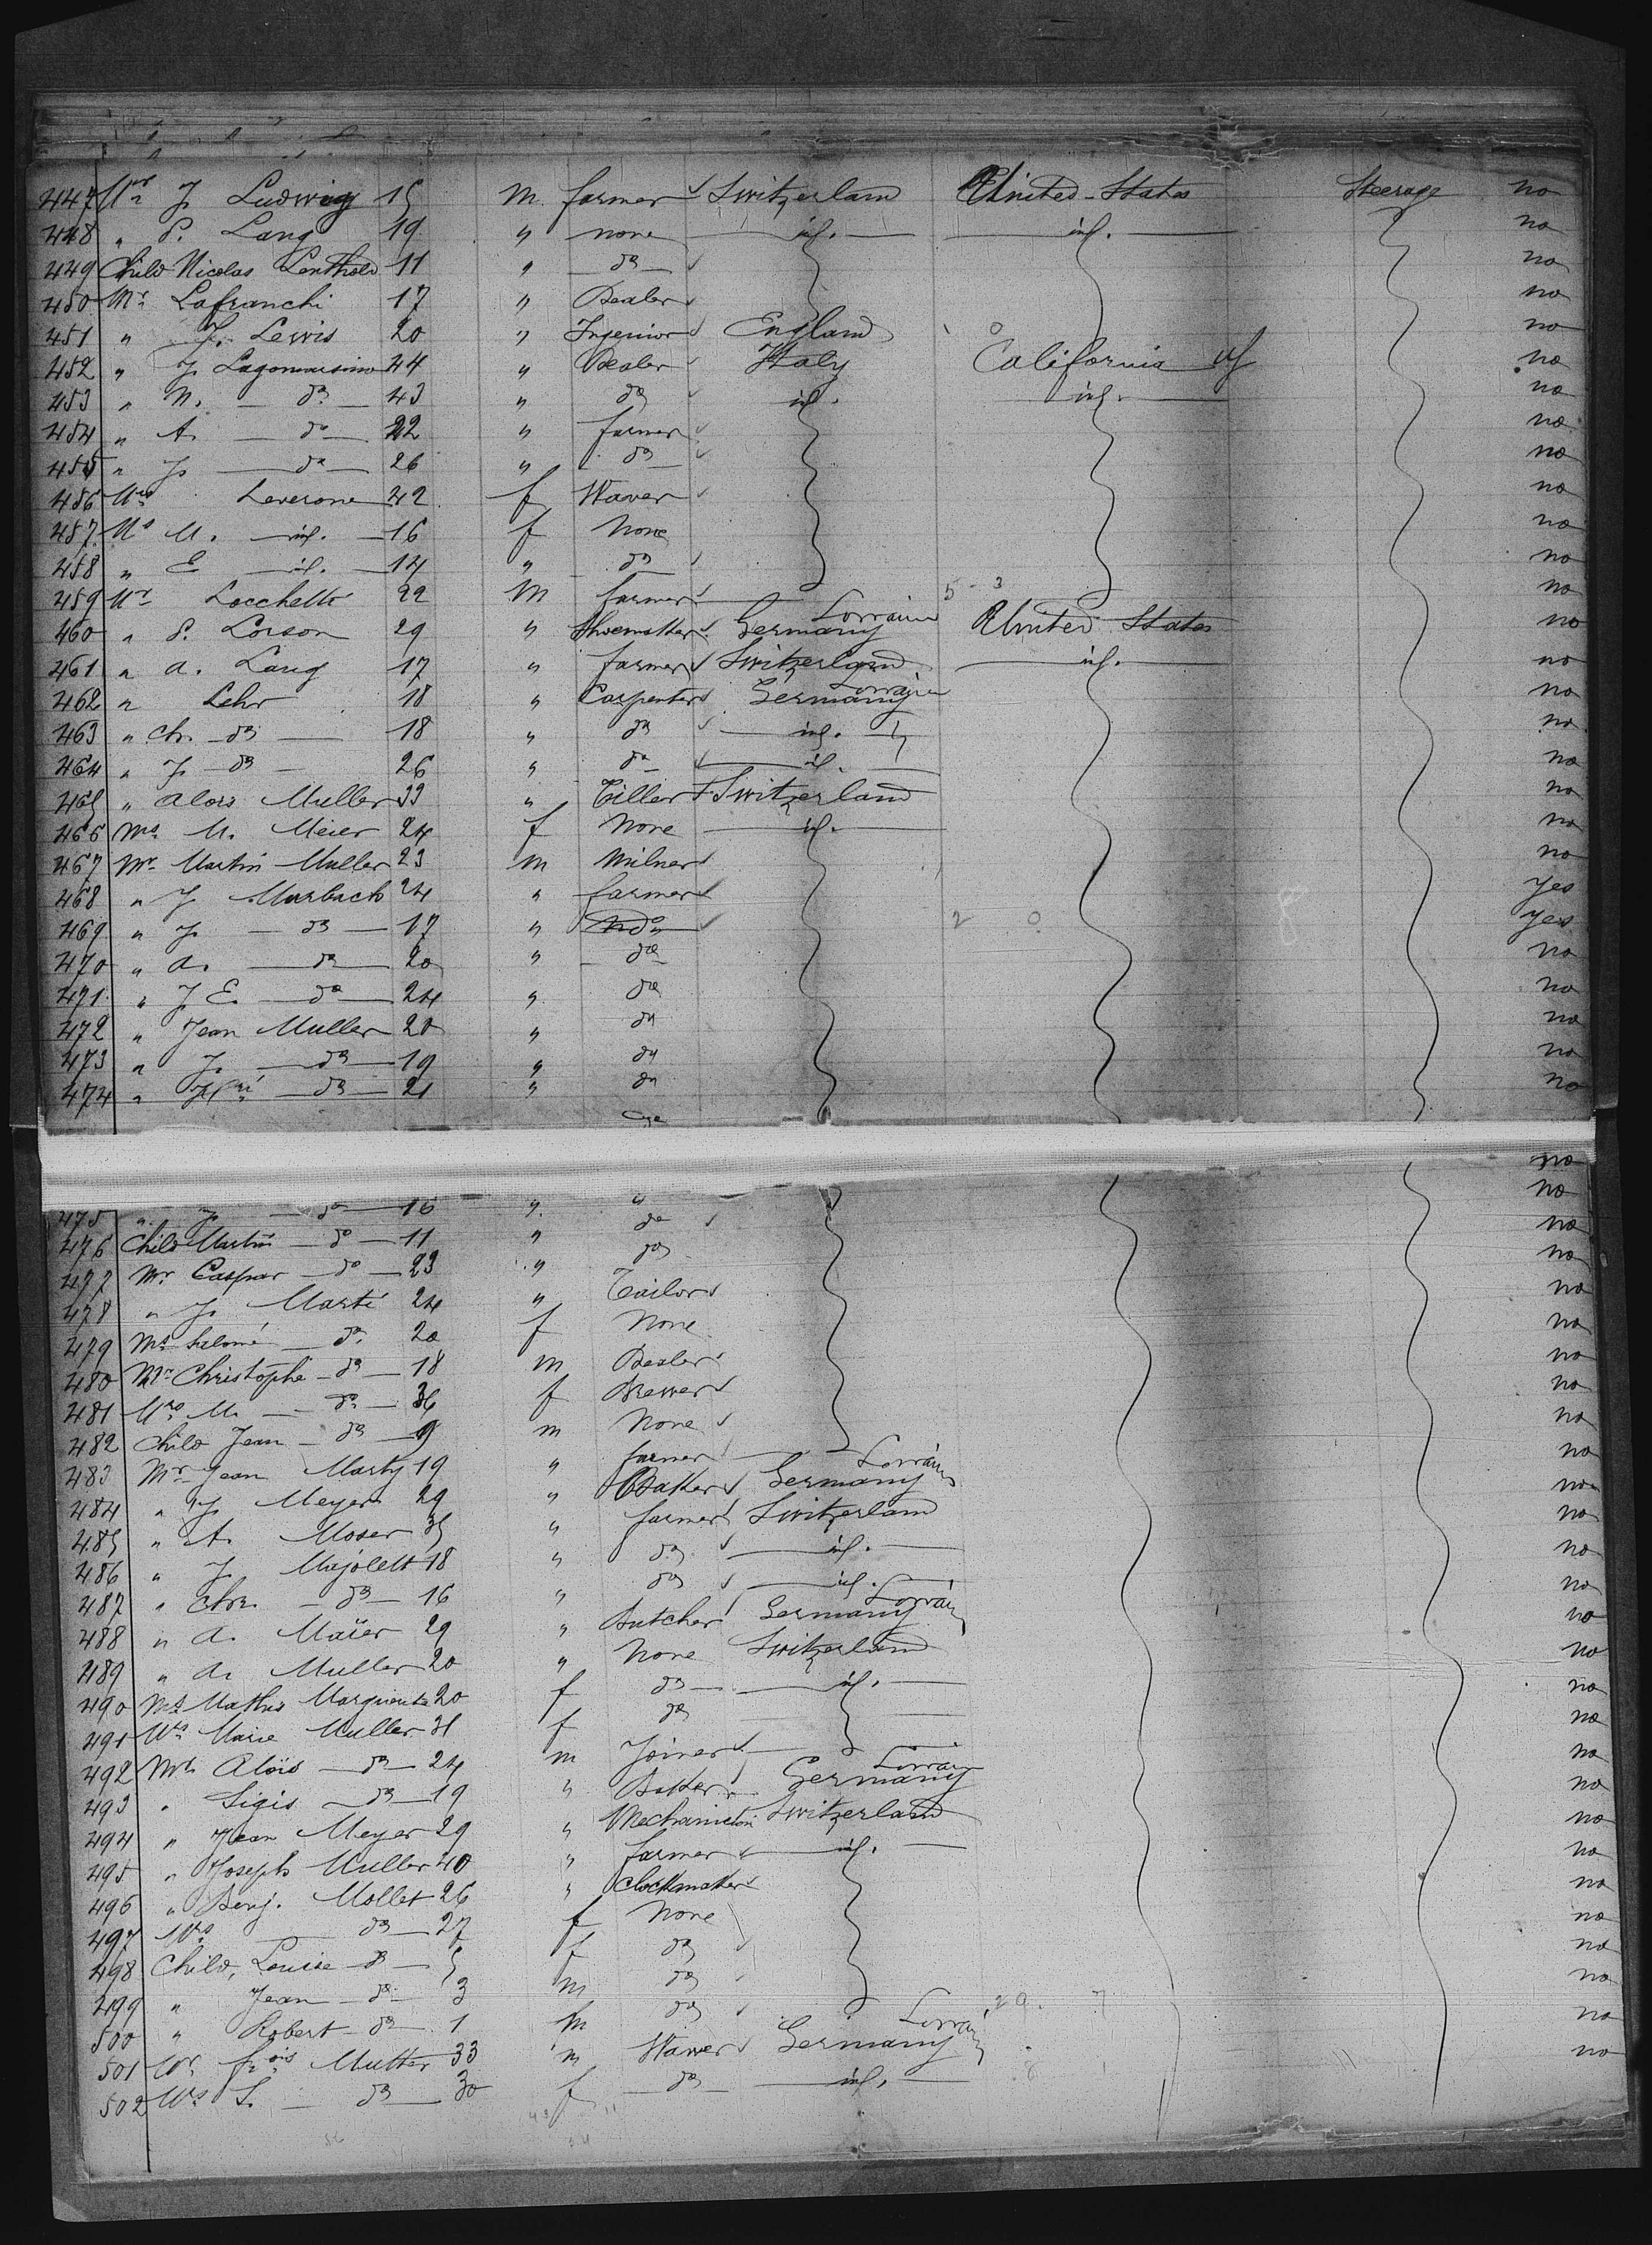 447 Mr J Ludwig 15 m farmer Switzerland United-States Steerage no
448 " P. Lang 19 " none id. id. no
449 Child Nicolas Lenthold 11 " do no
450 Mr Lafranchi 17 " Dealer no
451 " J. Lewis 20 " Ingenior England no
452 " J Lagomarsino 44 " Dealer Italy California no
453 " N. do 43 " do id. id. no
454 " A. do 22 " farmer no
455 " J. do 26 " do no
456 Mrs Leverone 42 f Waver no
457 Ms M. id. 16 f None no
458 " E id. 14 " do no
459 Mr Locchetti 22 m farmer 5-3 no
460 " P. Lorson 29 " Shoemakker Germany Lorraine United States no
461 " A. Lang 17 " farmer Switzerland id. no
462 " Lehr 18 " Carpenter Germany Lorraine no
463 " Ch. do 18 " do id. no
464 " J. do 26 " do id. no
465 " Alois Muller 33 " Tiller Switzerland no
466 Ms M. Meier 24 f None id. no
467 Mr Martin Muller 23 m Milner no
468 " J Marbach 24 " farmer yes
469 " J. do 17 " do 2 0 yes
470 " A. do 20 " do no
471 " J E. do 24 " do no
472 " Jean Muller 20 " do no
473 " J. do 19 " do no
474 " Hri do 21 " do no
no
475 " J. do 16 " " no
476 Child Martin do 11 " do no
477 Mr Caspar do 23 " do no
478 " J. Marti 24 " Tailor no
479 Ms Salomé do 20 f None no
480 Mr Christophe do 18 m Dealer no
481 Mrs M. do 36 f Brewer no
482 Child Jean do 9 m None no
483 Mr Jean Marty 19 " farmer no
484 " J Meyer 29 " Bakker Germany Lorrain no
485 " A. Moser 35 " farmer Switzerland no
486 " J. Majolett 18 " do id. no
487 " Chr. do 16 " do id. no
488 " A. Maïer 29 " Butcher Germany Lorrain no
489 " A. Muller 20 " None Switzerland no
490 Ms Mathis Marguerite 20 f do id. no
491 Ms Marie Muller 31 f do no
492 Mr Aloïs do 24 m Joiner no
493 " Sigis do 19 " Bakker Germany Lorrain no
494 " Jean Meyer 29 " Mechanician Switzerland no
495 " Joseph Muller 40 " farmer id. no
496 " Benj. Mollet 26 " Clockmaker no
497 Ms do 27 f None no
498 Child, Louise do 5 f do no
499 " Jean do 3 m do no
500 " Robert do 1 m do 29. 7 no
501 Mr fcois Mutter 33 m Waver Germany Lorrain no
502 Ms S. do 30 f do id.